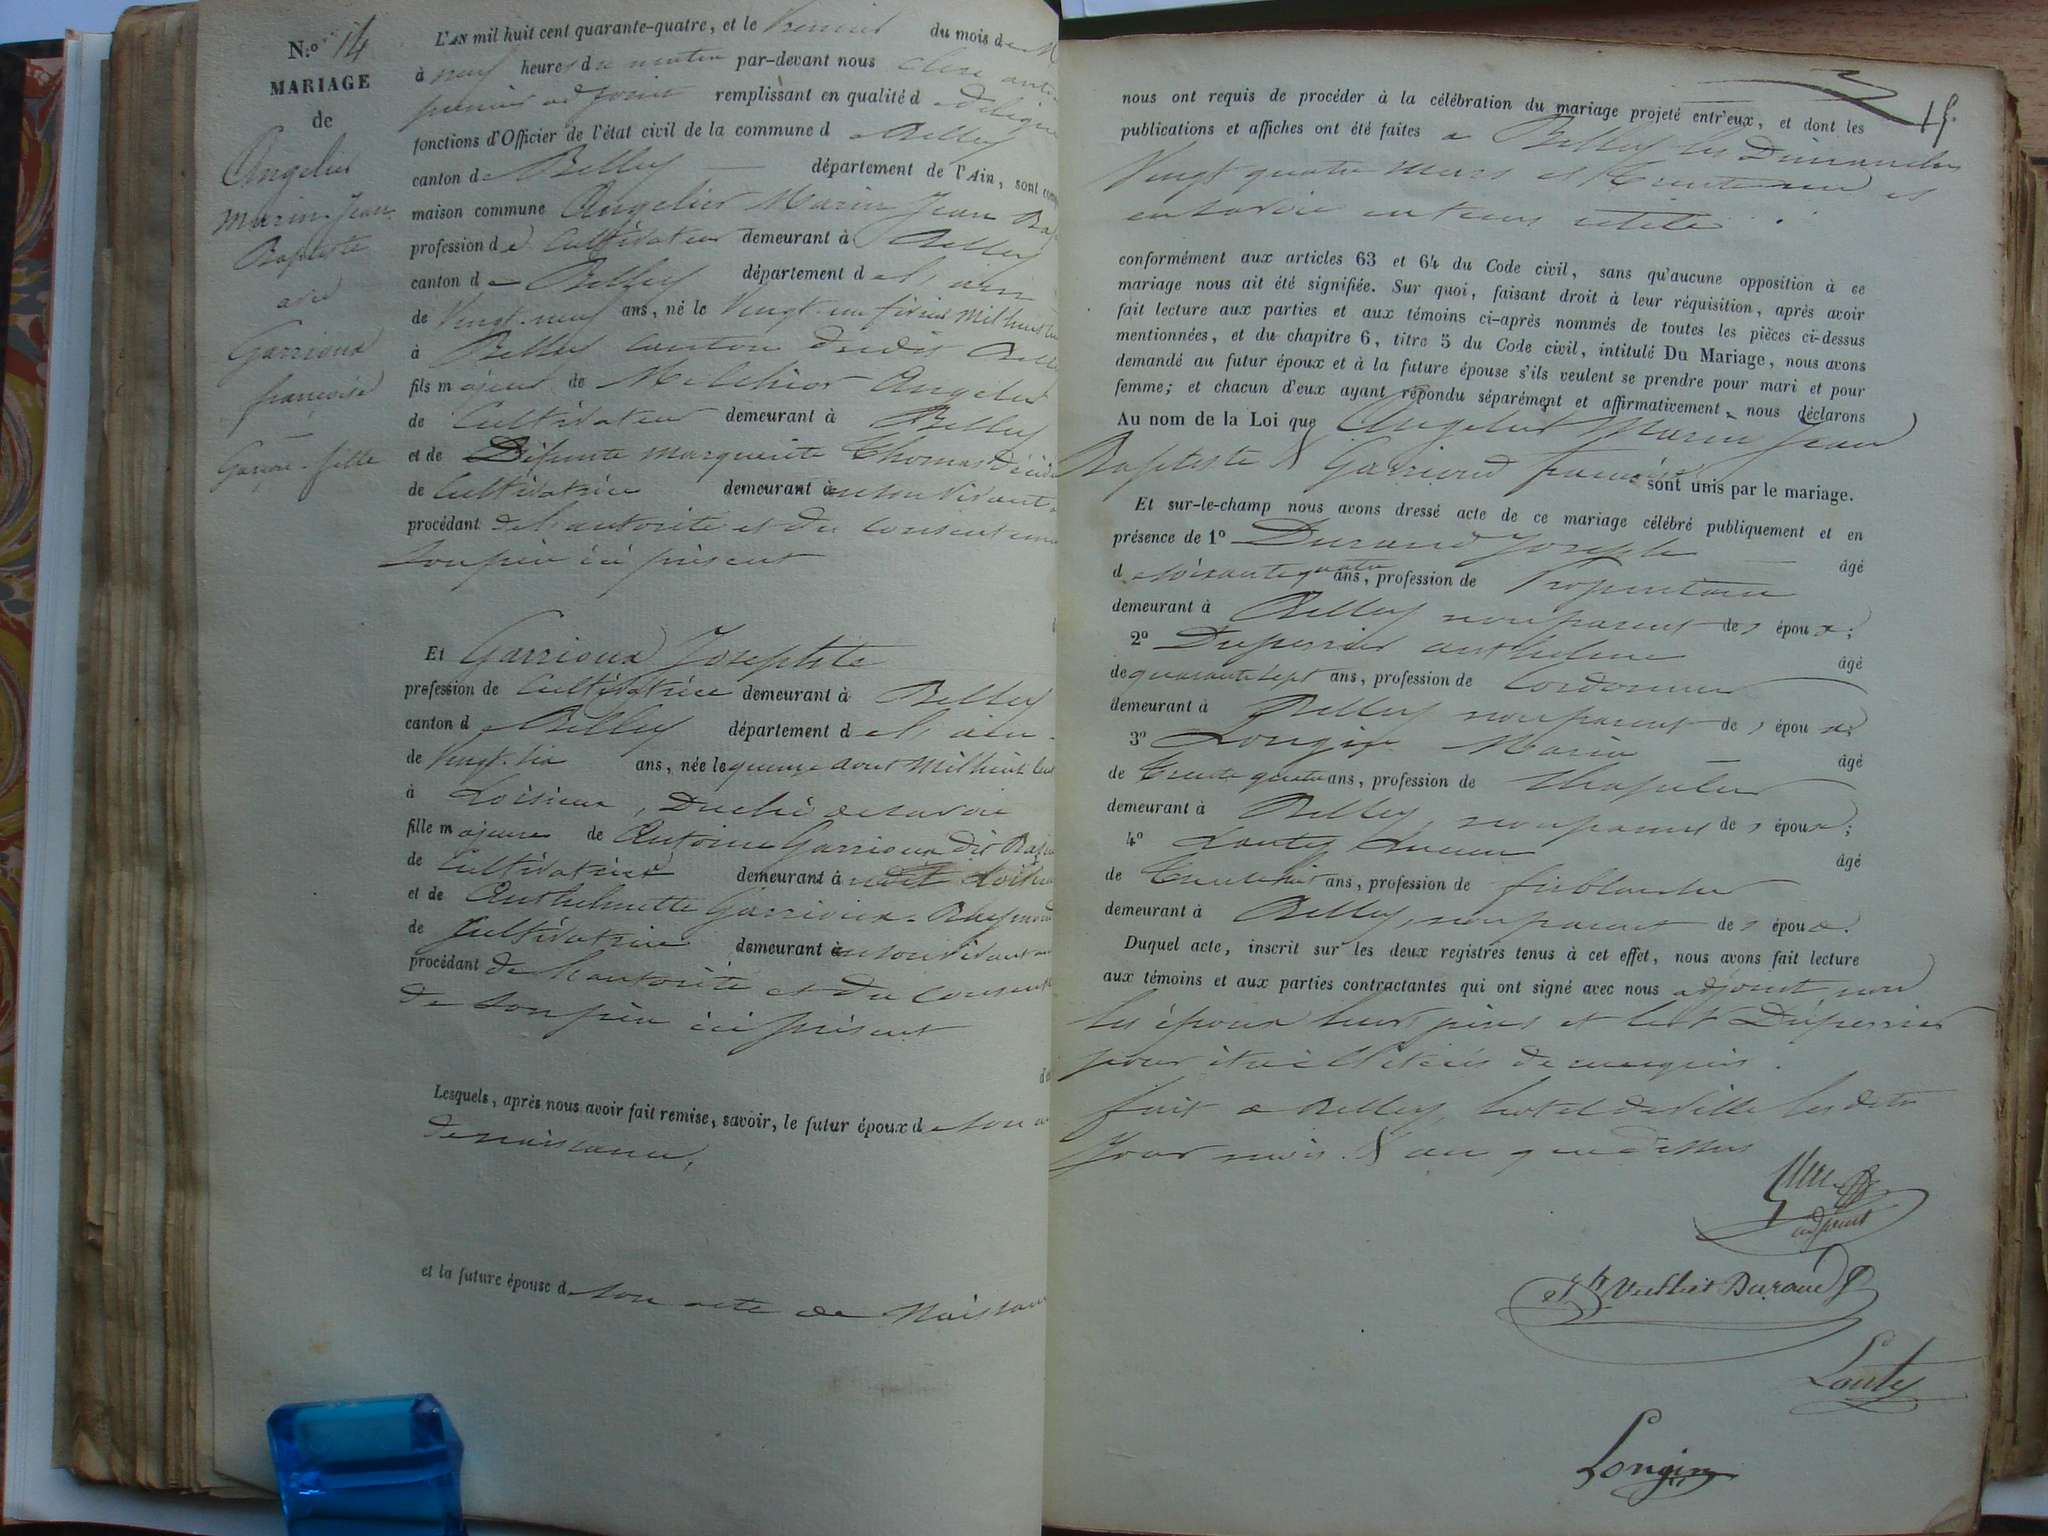 N.o 14
MARIAGE
de
Angelier
Marin Jean
Baptiste
avec
Garrioud
françoise
Garçon - fille
L'AN mil huit cent quarante-quatre, et le du mois de M
à neuf heures du matin par-devant nous
premier adjoint remplissant en qualité d
fonctions d'Officier de l'état civil de la commune d e Belley
canton de Belley département de l'Ain, sont
maison commune Angelier Marin Jean Ba
profession de Cultivateur demeurant à Belley
canton de Belley département de l'ain
de Vingt-neuf ans, né le Vingt-un mil huit
à Belley canton dudit Belle
fils majeur de Melchior Angelier
de Cultivateur demeurant à Belley
et de Défunte Marguerite Thomas
de Cultivatrice demeurant à en son vivant
procédant de l'autorité et du consentem
son père ici présent
Et Garrioud Josephte
profession de Cultivatrice demeurant à Belley
canton de Belley département de l'ain
de Vingt-six ans, née le quinze aout mil huit cent
à Loisieux, Duché de savoie
fille majeure de Antoine Garrioud dit
de Cultivatrice demeurant à
et de Anthelmette Garrioud
de Cultivatrice demeurant à en son vivant
procédant de l'autorité et du consent
de son père ici présent
Lesquels, après nous avoir fait remise, savoir, le futur époux de son a
de naissance,
et la future épouse de son acte de Naissan
15.
nous ont requis de procéder à la célébration du mariage projeté entr'eux, et dont les
publications et affiches ont été faites a Belley les Dimanches
Vingt quatre mars et trente un et
en savoie
conformément aux articles 63 et 64 du Code civil, sans qu'aucune opposition à ce
mariage nous ait été signifiée. Sur quoi, faisant droit à leur réquisition, après avoir
fait lecture aux parties et aux témoins ci-après nommés de toutes les pièces ci-dessus
mentionnées, et du chapitre 6, titre 5 du Code civil, intitulé Du Mariage, nous avons
demandé au futur époux et à la future épouse s'ils veulent se prendre pour mari et pour
femme; et chacun d'eux ayant répondu séparément et affirmativement, nous déclarons
Au nom de la Loi que Angelier Marin Jean
Baptiste & Garrioud sont unis par le mariage.
Et sur-le-champ nous avons dressé acte de ce mariage célébré publiquement et en
présence de 1o Durand Joseph âgé
de soixante quatre ans, profession de Propriétaire
demeurant à Belley non parent des époux;
2o Duperrier anthelme âgé
de quarante sept ans, profession de Cordonnier
demeurant à Belley non parent des époux;
3o Longin Marin âgé
de Trente quatre ans, profession de Chapelier
demeurant à Belley, non parent des époux;
4o Louty âgé
de ans, profession de ferblantier
demeurant à Belley, non parent des époux.
Duquel acte, inscrit sur les deux registres tenus à cet effet, nous avons fait lecture
aux témoins et aux parties contractantes qui ont signé avec nous adjoint, non
les époux leurs pères et le Sr Duperrier
pour être illitérés de ce requis.
fait a Belley, hotel de ville les dits
Jour mois & an que dessus
adjoint
Durand
Louty
Longin